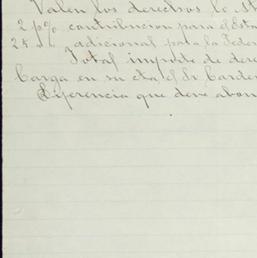 Valen los derechos
2 p% contribucion para el Esta
25 " " adicional para la Feder
Total importe de dere
Carga en su cta el Sr Carden
Diferencia que debe abon